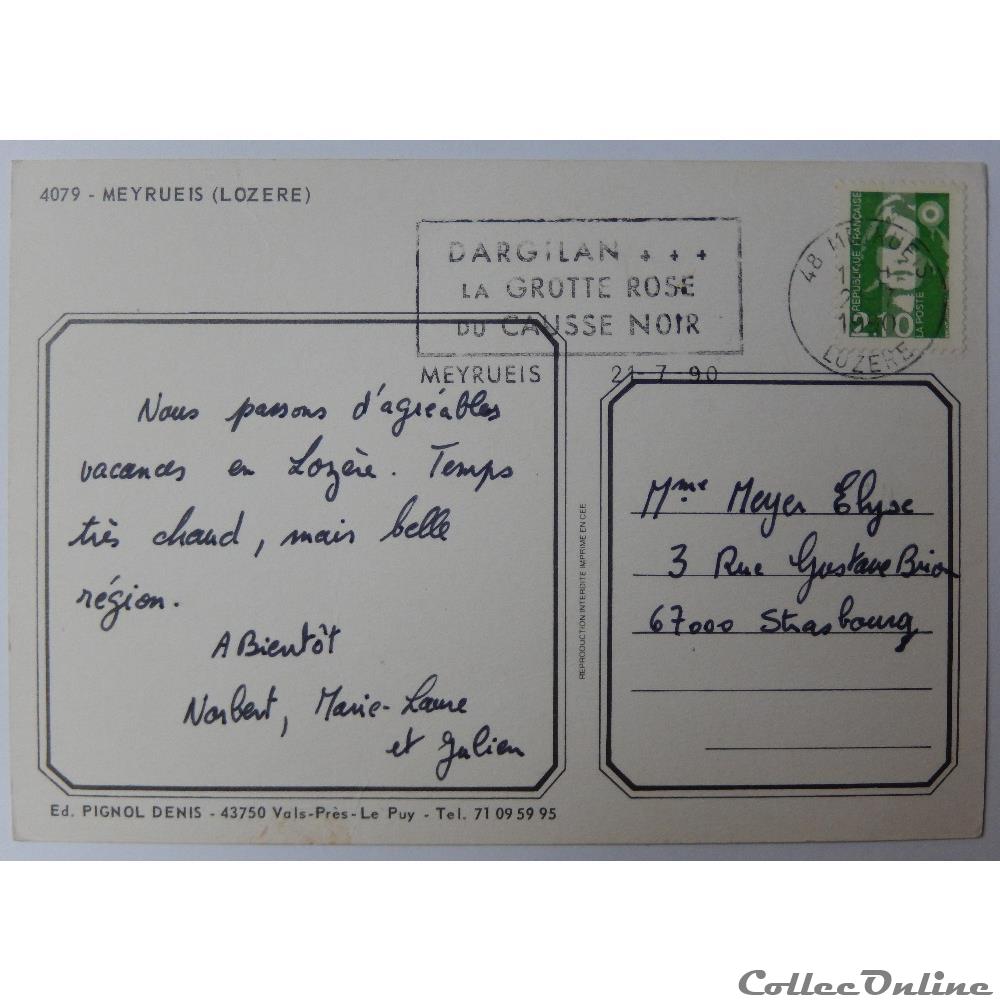 4079 - MEYRUEIS (LOZERE)
DARGILAN + + +
LA GROTTE ROSE
DU CAUSSE NOIR
MEYRUEIS 21-7-90
48 MEYRUEIS
LOZERE
REPUBLIQUE FRANÇAISE
2,10
LA POSTE
Nous passons d'agréables
vacances en Lozère. Temps
très chaud, mais belle
région.
A Bientôt
Norbert, Marie-Laure
et Julien
REPRODUCTION INTERDITE IMPRIME EN CEE
Mme Meyer Elyse
3 Rue Gustave Brion
67000 Strasbourg
Ed. PIGNOL DENIS - 43750 Vals-Près-Le Puy - Tel. 71 09 59 95
CollecOnline